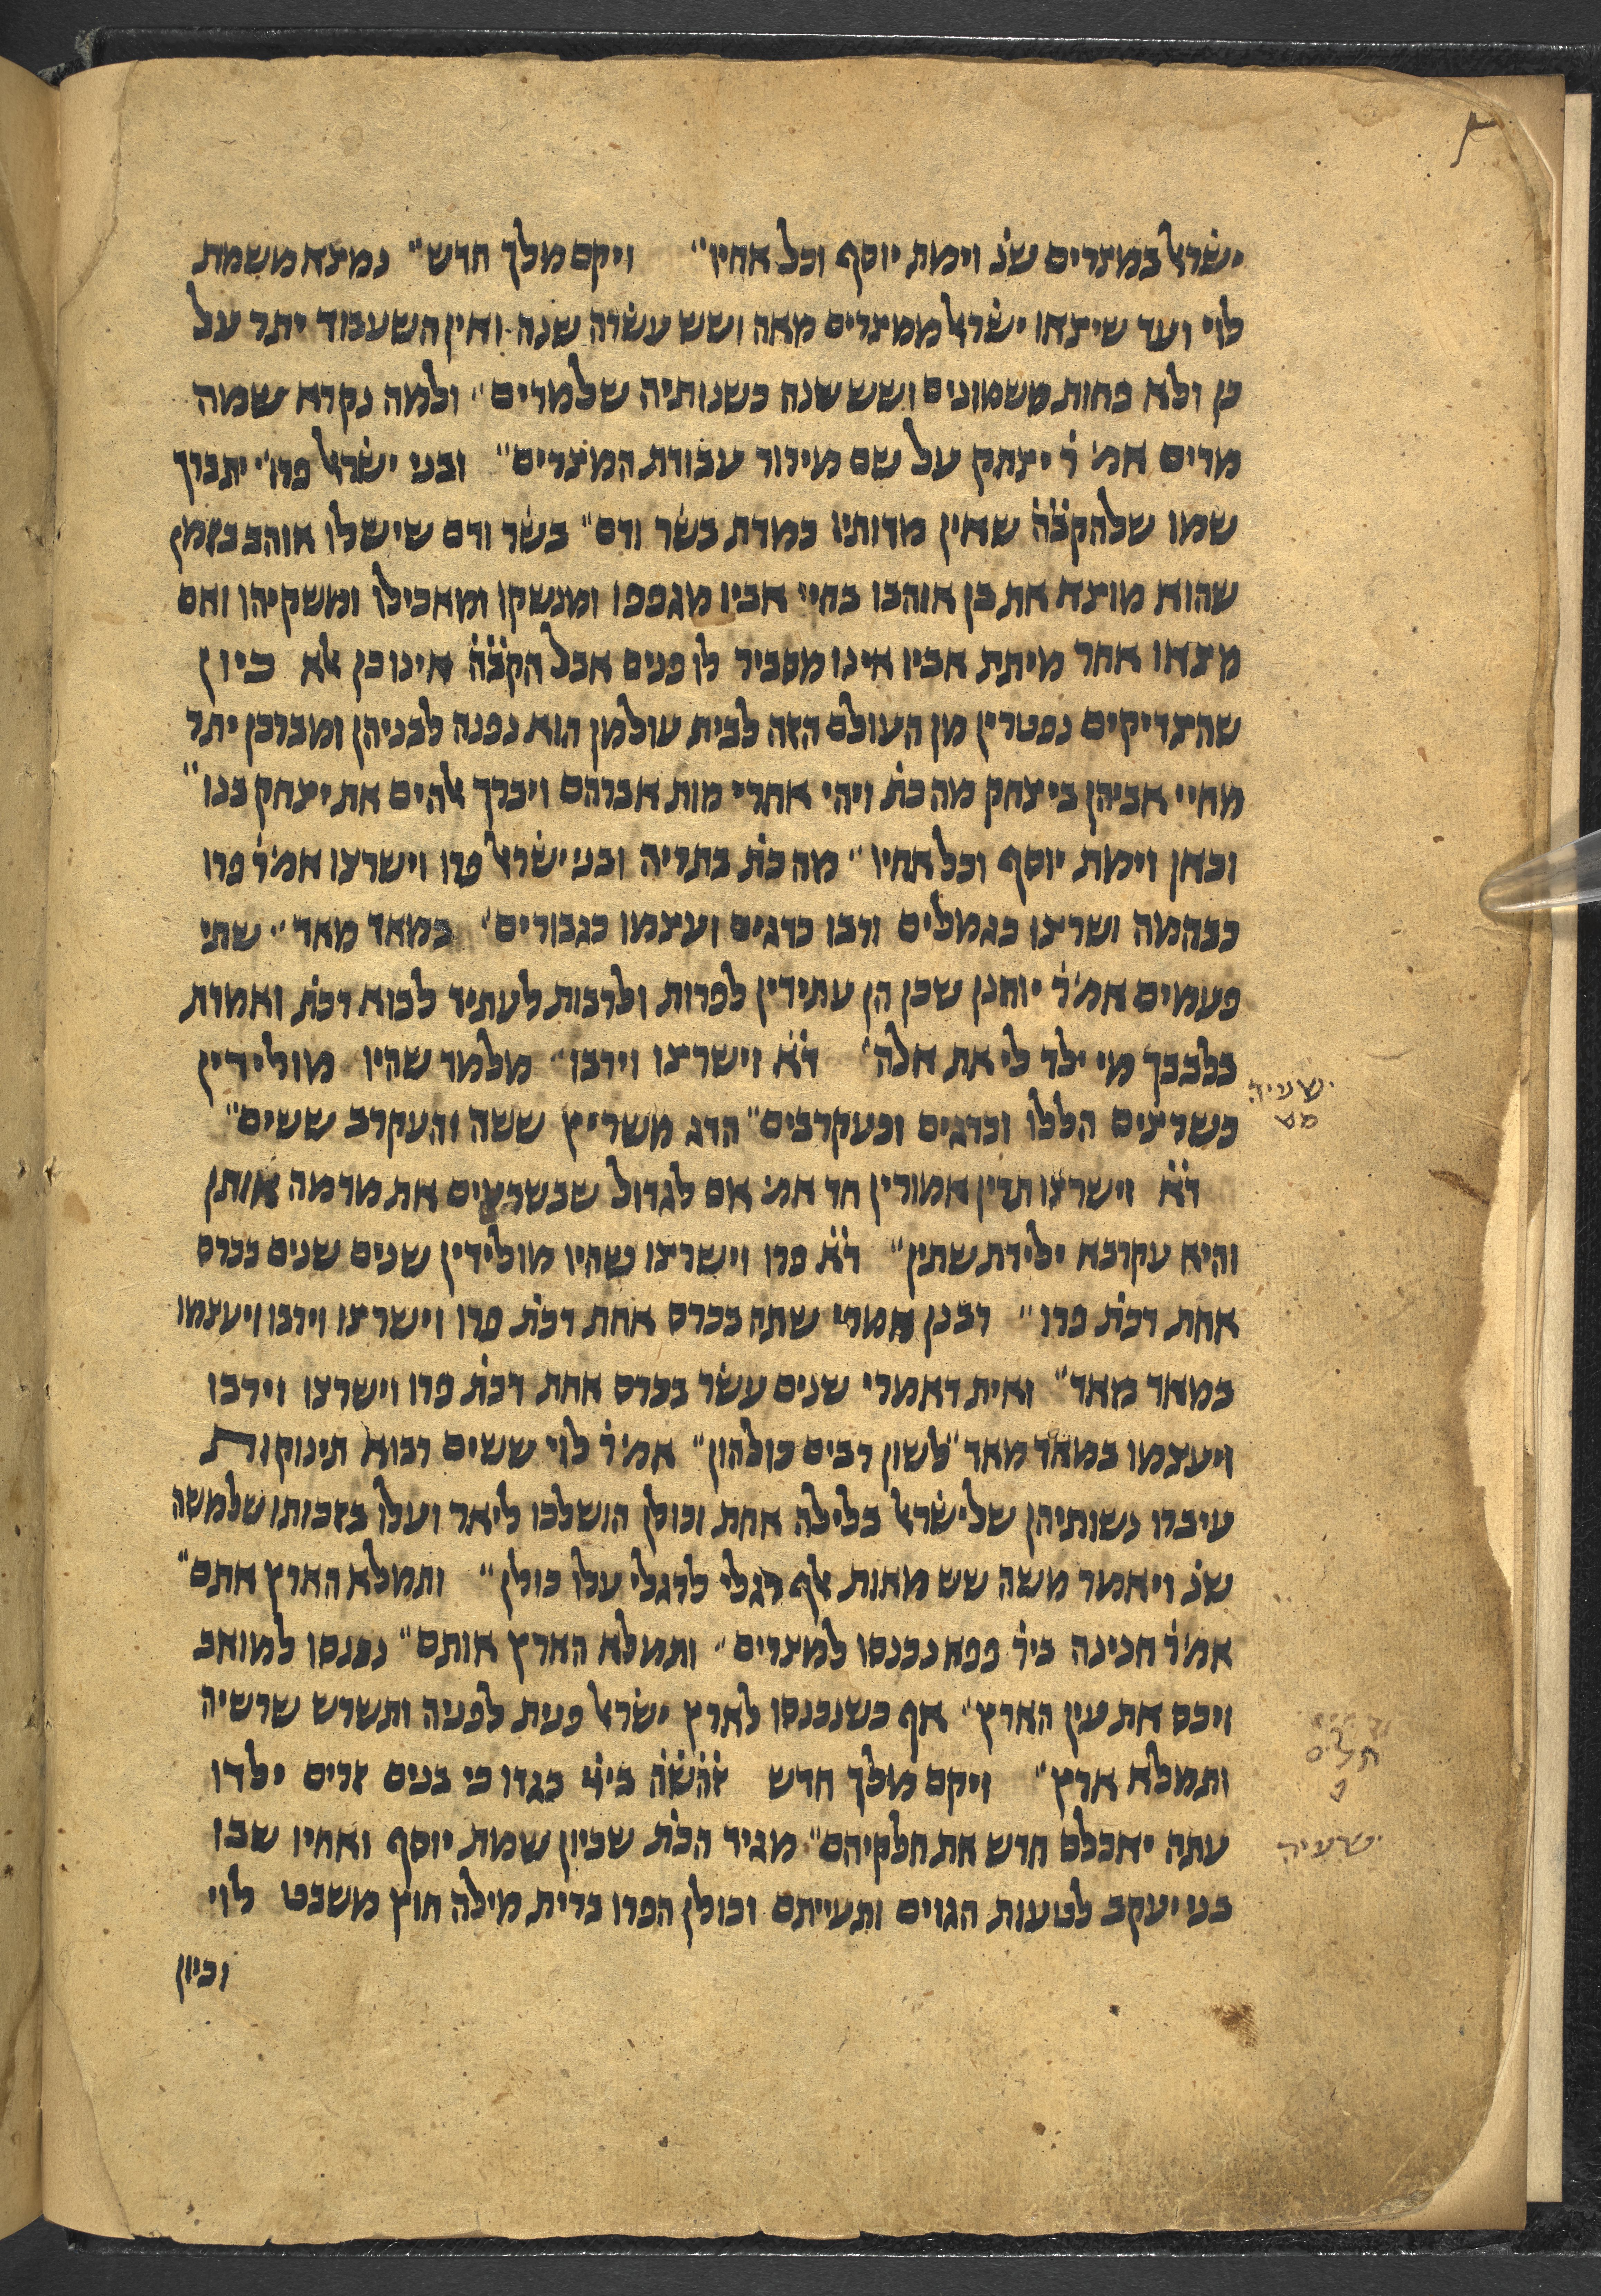 ישׂראל במצרים שנ׳ וימת יוסף וכל אחיו״ ויקם מלך חדש״ נמצא משמת
לוי ועד שיצאו ישׂראל ממצרים מאה ושש עשׂרה שנה. ואין השעבוד יתר על
כן ולא פחות משמונים ושש שנה כשנותיה שלמרים״ ולמה נקרא שמה
מרים אמ׳ ר׳ יצחק על שם מירור עבודת המצרים״ ובני ישׂראל פרו״ יתברך
שמו שלהקבׄהׄ שאין מדותיו כמדת בשׂר ודם״ בשׂר ודם שיש לו אוהב בזמן
שהוא מוצא את בן אוהבו בחיי אביו מגפפו ומנשקו ומאכילו ומשקיהו ואם
מצאו אחר מיתת אביו אינו מסביר לו פנים אבל הקבׄהׄ אינו כן אלא כיון
שהצדיקים נפטרין מן העולם הזה לבית עולמן הוא נפנה לבניהן ומברכן יתר
מחיי אביהן ביצחק מה כת׳ ויהי אחרי מות אברהם ויברך אלהים את יצחק בנו״
וכאן וימת יוסף וכל אחיו״ מה כת׳ בתריה ובני ישׂראל פרו וישרצו אמ׳ ר׳ פרו
כבהמה ושרצו כגמלים ורבו כדגים ועצמו כגבורים״ במאד מאד״ שתי
פעמים אמ׳ ר׳ יוחנן שכן הן עתידין לפרות ולרבות לעתיד לבוא דכת׳ ואמרת
בלבבך מי ילד לי את אלה״ דׄאׄ וישרצו וירבו״ מלמד שהיו מולידין
ישעיה
מט
כשרצים הללו וכדגים וכעקרבים״ הדג משריץ ששה והעקרב ששים״
דׄאׄ וישרצו תרין אמורין חד אמ׳ אם לגדול שבשרצים את מדמה אותן
והיא עקרבא ילידת שתין״ דׄאׄ פרו וישרצו שהיו מולידין שנים שנים בכרס
אחת דכת׳ פרו״ רבנן אמרי שתה בכרס אחת דכת׳ פרו וישרצו וירבו ויעצמו
במאד מאד״ ואית דאמרי שנים עשׂר בכרס אחת דכת׳ פרו וישרצו וירבו
ויעצמו במאד מאד״ לשון רבים כולהון״ אמ׳ ר׳ לוי ששים רבוא תינוקות
עיברו נשותיהן שלישׂראל בלילה אחת וכולן הושלכו ליאר ועלו בזכותו שלמשה
שנ׳ ויאמר משה שש מאות אלף רגלי לרגלי עלו כולן״ ותמלא הארץ אתם״
אמ׳ ר׳ חנינה ביר׳ פפא נכנסו למצרים״ ותמלא הארץ אותם״ נכנסו למואב
ויכס את עין הארץ״ אף כשנכנסו לארץ ישׂראל פנית לפניה ותשרש שרשיה
ותמלא ארץ״ ויקם מלך חדש זׄהׄשׄהׄ ביׄיׄ בגדו כי בנים זרים ילדו
תלים
פ
עתה יאכלם חדש את חלקיהם״ מגיד הכת׳ שכיון שמת יוסף ואחיו שבו
ישעיה
בני יעקב לטעות הגוים ותעייתם וכולן הפרו ברית מילה חוץ משבט לוי
וכיון